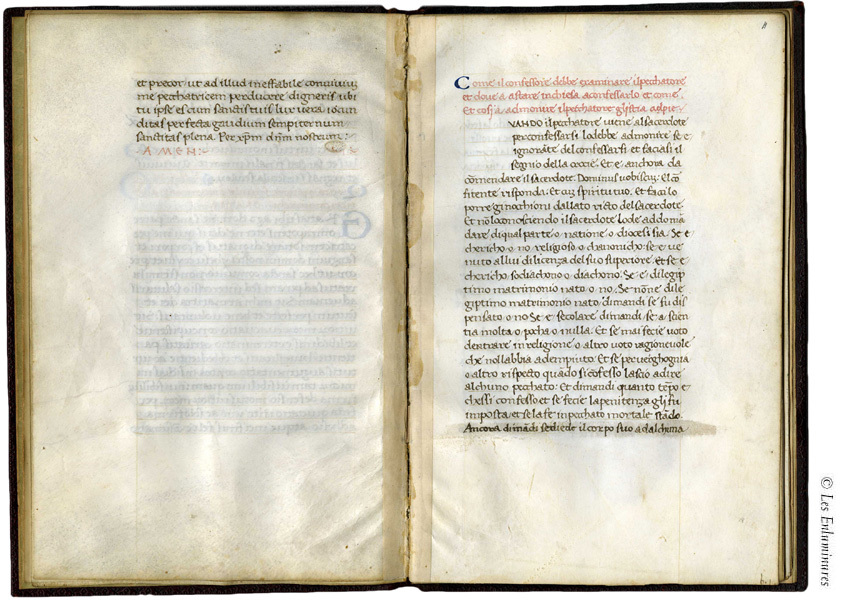 et precor ut ad illud ineffabile conviviũ
me pecchatricem perducere digneris ubi
tu ipse es cum sanctis tuis lux vera iocun
ditas perfecta gaudium sempiternum
sanctitas plena. Per xp̃m dñm nostrum:
AMEN:
8
Come il confessore debbe examinare il pecchatore
et dove a astare inchiesa aconfessarlo et come.
Et cosi a admonire il pecchatore
VANDO il pecchatore viene al sacerdote
per confessarsi lo debbe admonire se e
ignorãte del confessarsi et facciasi il
segnio della croce. Et e anchora da
cõmendare il sacerdote. Dominus vobiscũ. El cõ
fitente risponda: Et cũ spiritu tuo. et faccilo
porre ginochioni dallato ricto del sacerdote.
Et nõ lo conosciendo il sacerdote lo de addomã
dare di qual parte o natione o diocesi sia. Se e
chericho o no. religioso o chanonicho. se e ve
nuto allui di licenza del suo superiore. Et se e
chericho sodiachono o diachono. Se e di legip
timo matrimonio nato o no. Se nõne di le
giptimo matrimonio nato dimandi se fu dis
pensato o no. Se e secolare dimandi se a scien
tia molta o pocha o nulla. Et se mai fecie voto
dentrare in religione o altro voto ragionevole
che nollabbia adempiuto. Et se per verghognia
o altro rispecto quãdo si cõfesso lascio a dire
alchuno pecchato. Et dimandi quanto tẽpo e
chessi confesso et se fecie la penitenza gli fu
imposta et se la fe in pecchato mortale stãdo.
Ancora dimãdi se diede il corpo suo ad alchuna
© Les Enluminures